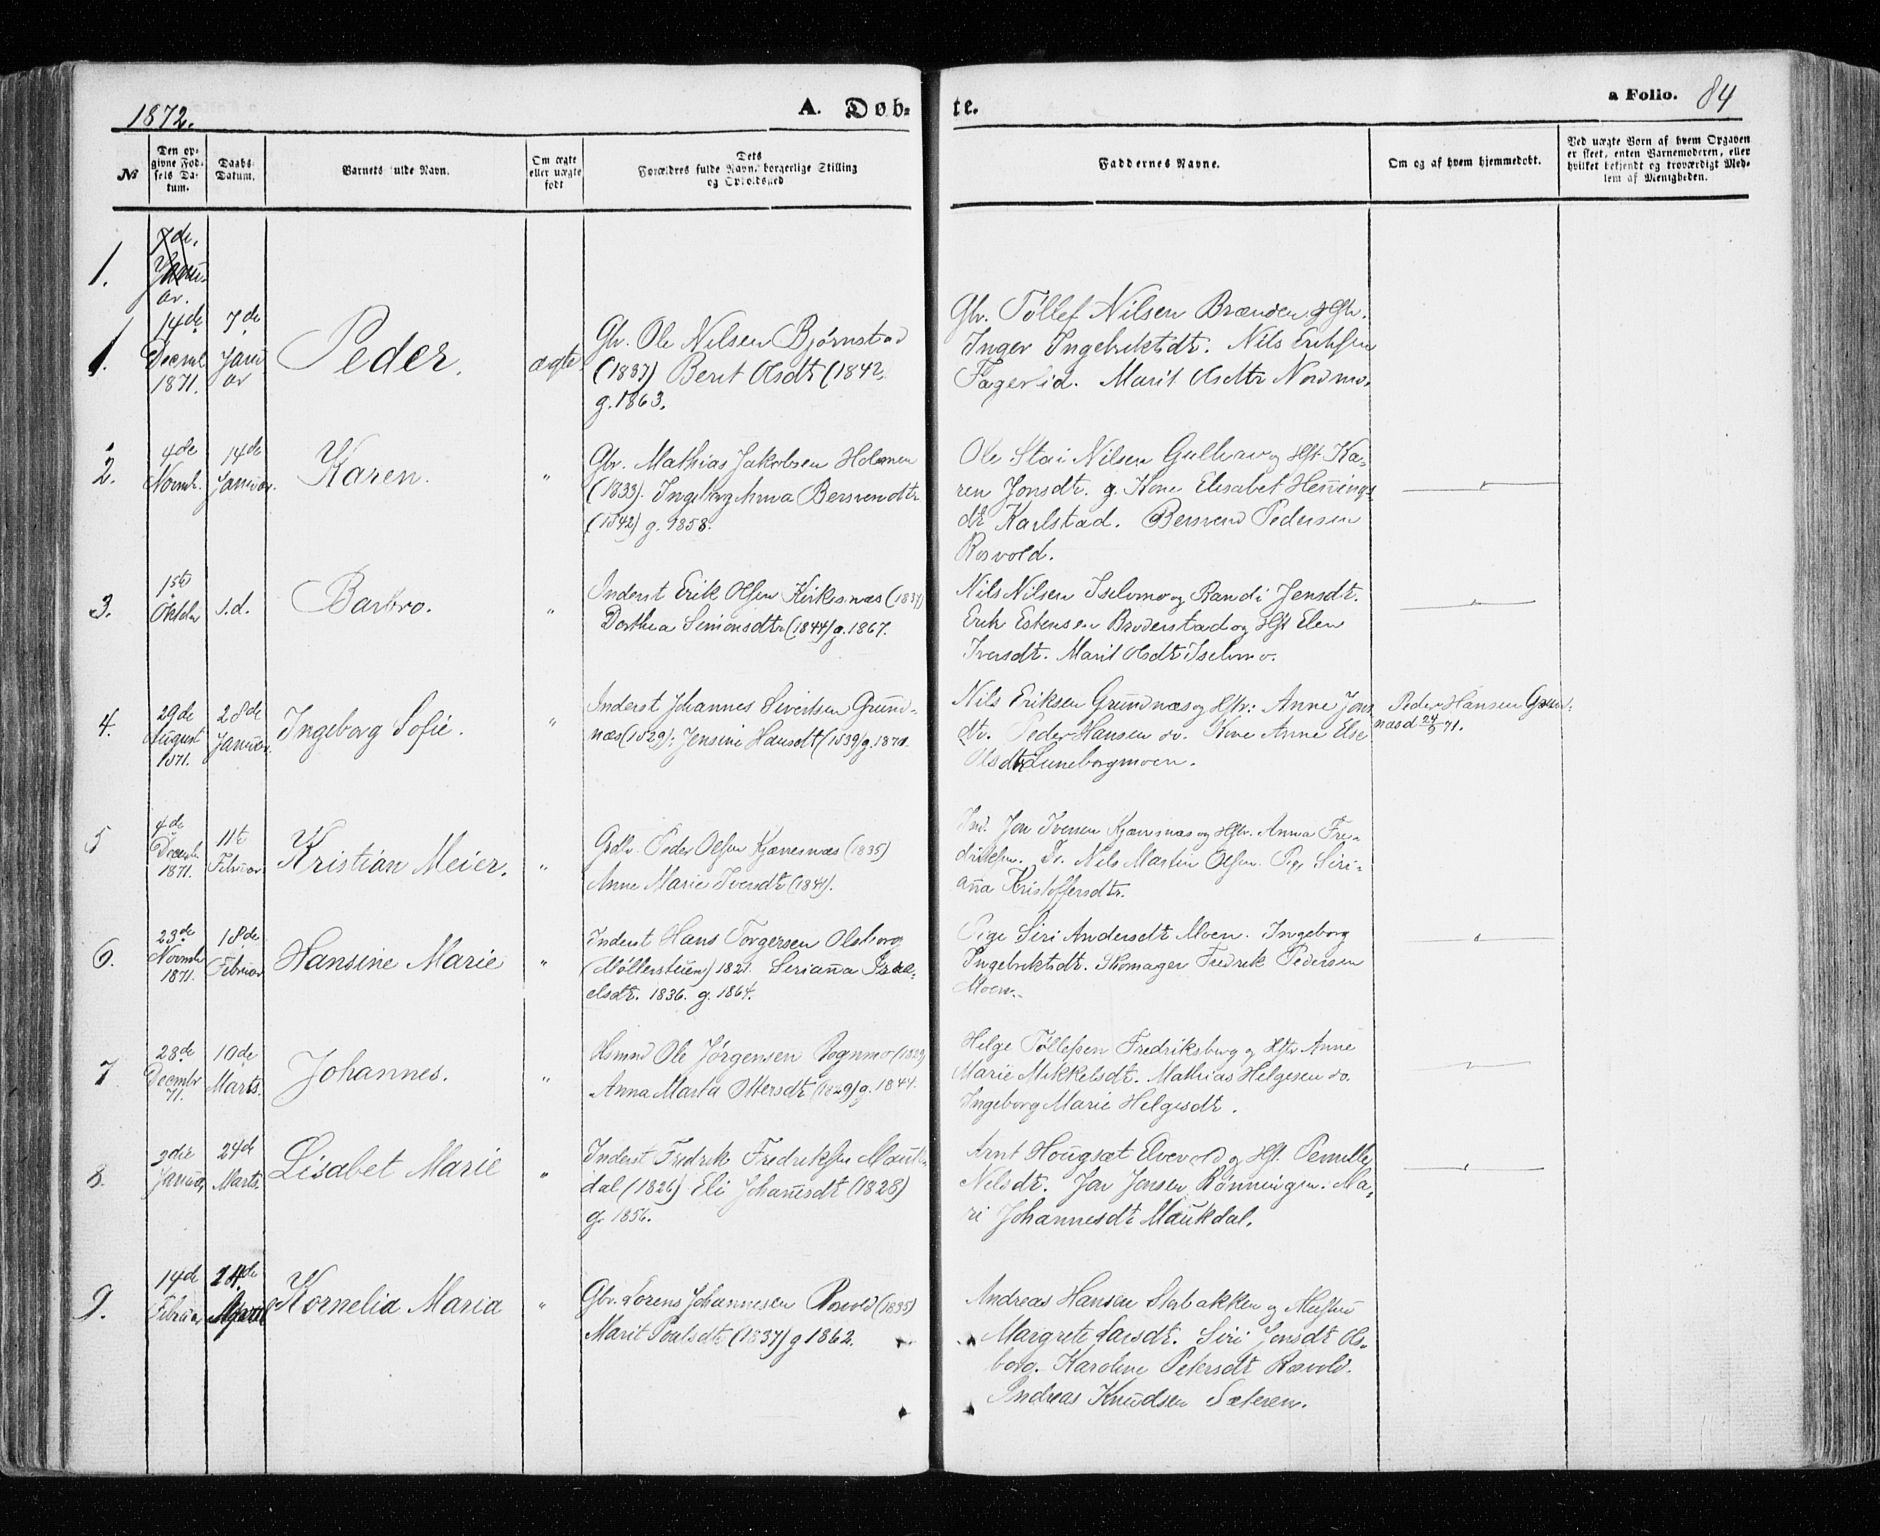 1872.
A. Døb-
te.
a Folio. 84
No
Den op-
givne Fød-
sels Da-
tum.
Daabs
Datum.
Barnets fulde Navn.
Om ægte
eller uægte
født
Dets
Forældres fulde Navn, borgerlige Stilling
og Opholdsted
Faddernes Navne.
Om og af hvem hjemmedøbt.
Ved uægte Børn af hvem Opgaven
er skeet, enten Barnemoderen, eller
hvilket bekjendt og troværdigt Med-
lem af Menigheden.
1.
7de.
Janu-
ar.
1.
14de
Decmb
1871.
7de
Janu
ar
Peder.
ægte
Gbr. Ole Nilsen Bjørnstad
(1837) Berit Olsdt (1842
g. 1863.
Gbr. Tøllef Nilsen Brænden og Hstr.
Inger Ingebriktsdt. Nils Eriksen
Fagerlid. Marit Olsdtr Nordmo.
2.
4de
Novmb.
14de
Januar.
Karen.
"
Gbr. Mathias Jakobsen Holmen
(1833). Ingeborg Anna Bersvendtr
(1842) g. 1858.
Ole Stai Nilsen Gulhav og Hst Ka-
ren Jonsdt. g. Kone Elisabet Hennings-
dt Karlstad. Bersvend Pedersen
Rosvold.
3.
1ste
Oktober
s.d.
Barbro.
"
Inderst Erik Olsen Kirkesnæs (1837)
Dorthea Simonsdtr (1844) g. 1867.
Nils Nilsen Iselvmo og Randi Jensdt.
Erik Estensen Brøderstad og Hst Elen
Iversdt. Marit Olsdt Iselvmo.
4.
29de
August
1871.
28de
Januar.
Ingeborg Sofie.
"
Inderst Johannes Sivertsen Grund-
næs (1829): Jensine Hansdt (1839) g. 1870.
Nils Eriksen Grundnæs og Hstr: Anne Jons
dtr. Peder Hansen do. Kone Anne Else
Olsdtr Luneborgmoen.
Peder Hansen Grund-
næs d 24/9 71.
5
4de
Decmb.
1871.
11te
Februar
Kristian Meier.
"
Gbr. Peder Olsen Kjærresnæs (1835)
Anne Marie Iversdt (1841).
Ind. Jon Iversen Kjærresnæs og Hstr. Anna Fre-
driksen. Nils Martin Olsen. Pige Seri-
anna Kristoffersdtr.
6.
23de
Novmb
1871.
18de
Februar
Hansine Marie
"
Inderst Hans Torgersen Olsborg
(Møllerstuen) 1821. Serianna Isra-
elsdt. 1836. g. 1864.
Pige Siri Andersdt Moen. Ingeborg
Ingebriktsdt. Skomager Fredrik Pedersen
Moen.
7
28de
Decembr
71.
10de
Marts.
Johannes.
"
Husmnd Ole Jørgensen Sognmo (1829)
Anna Marta Ottersdt (1829) g. 1844.
Helge Tøllefsen Fredriksberg og Hstr Anne
Marie Mikkelsdt. Mathias Helgesen do.
Ingeborg Marie Helgesdt.
8.
3die
Januar
24de
Marts.
Lisabet Marie
"
Inderst Fredrik Fredriksen Mauk-
dal (1826) Eli Johansdt (1828)
g. 1856.
Arnt Hougsæt Elvevold og Hst. Pernille
Nilsdt. Jon Jonsen Rønningen. Ma-
ri Johannesdt Maukdal.
9.
14de
Februar
24de
Marts
Kornelia Maria
"
Gbr. Lorens Johannesen Rosvold (1835)
Marit Poulsdt (1837) g 1862.
Andreas Hansen Storbakken og Hustru
Margrete Larsdt. Siri Jonsdt Ols-
borg. Karoline Petersdt Rosvold.
Andreas Knudsen Sæteren.